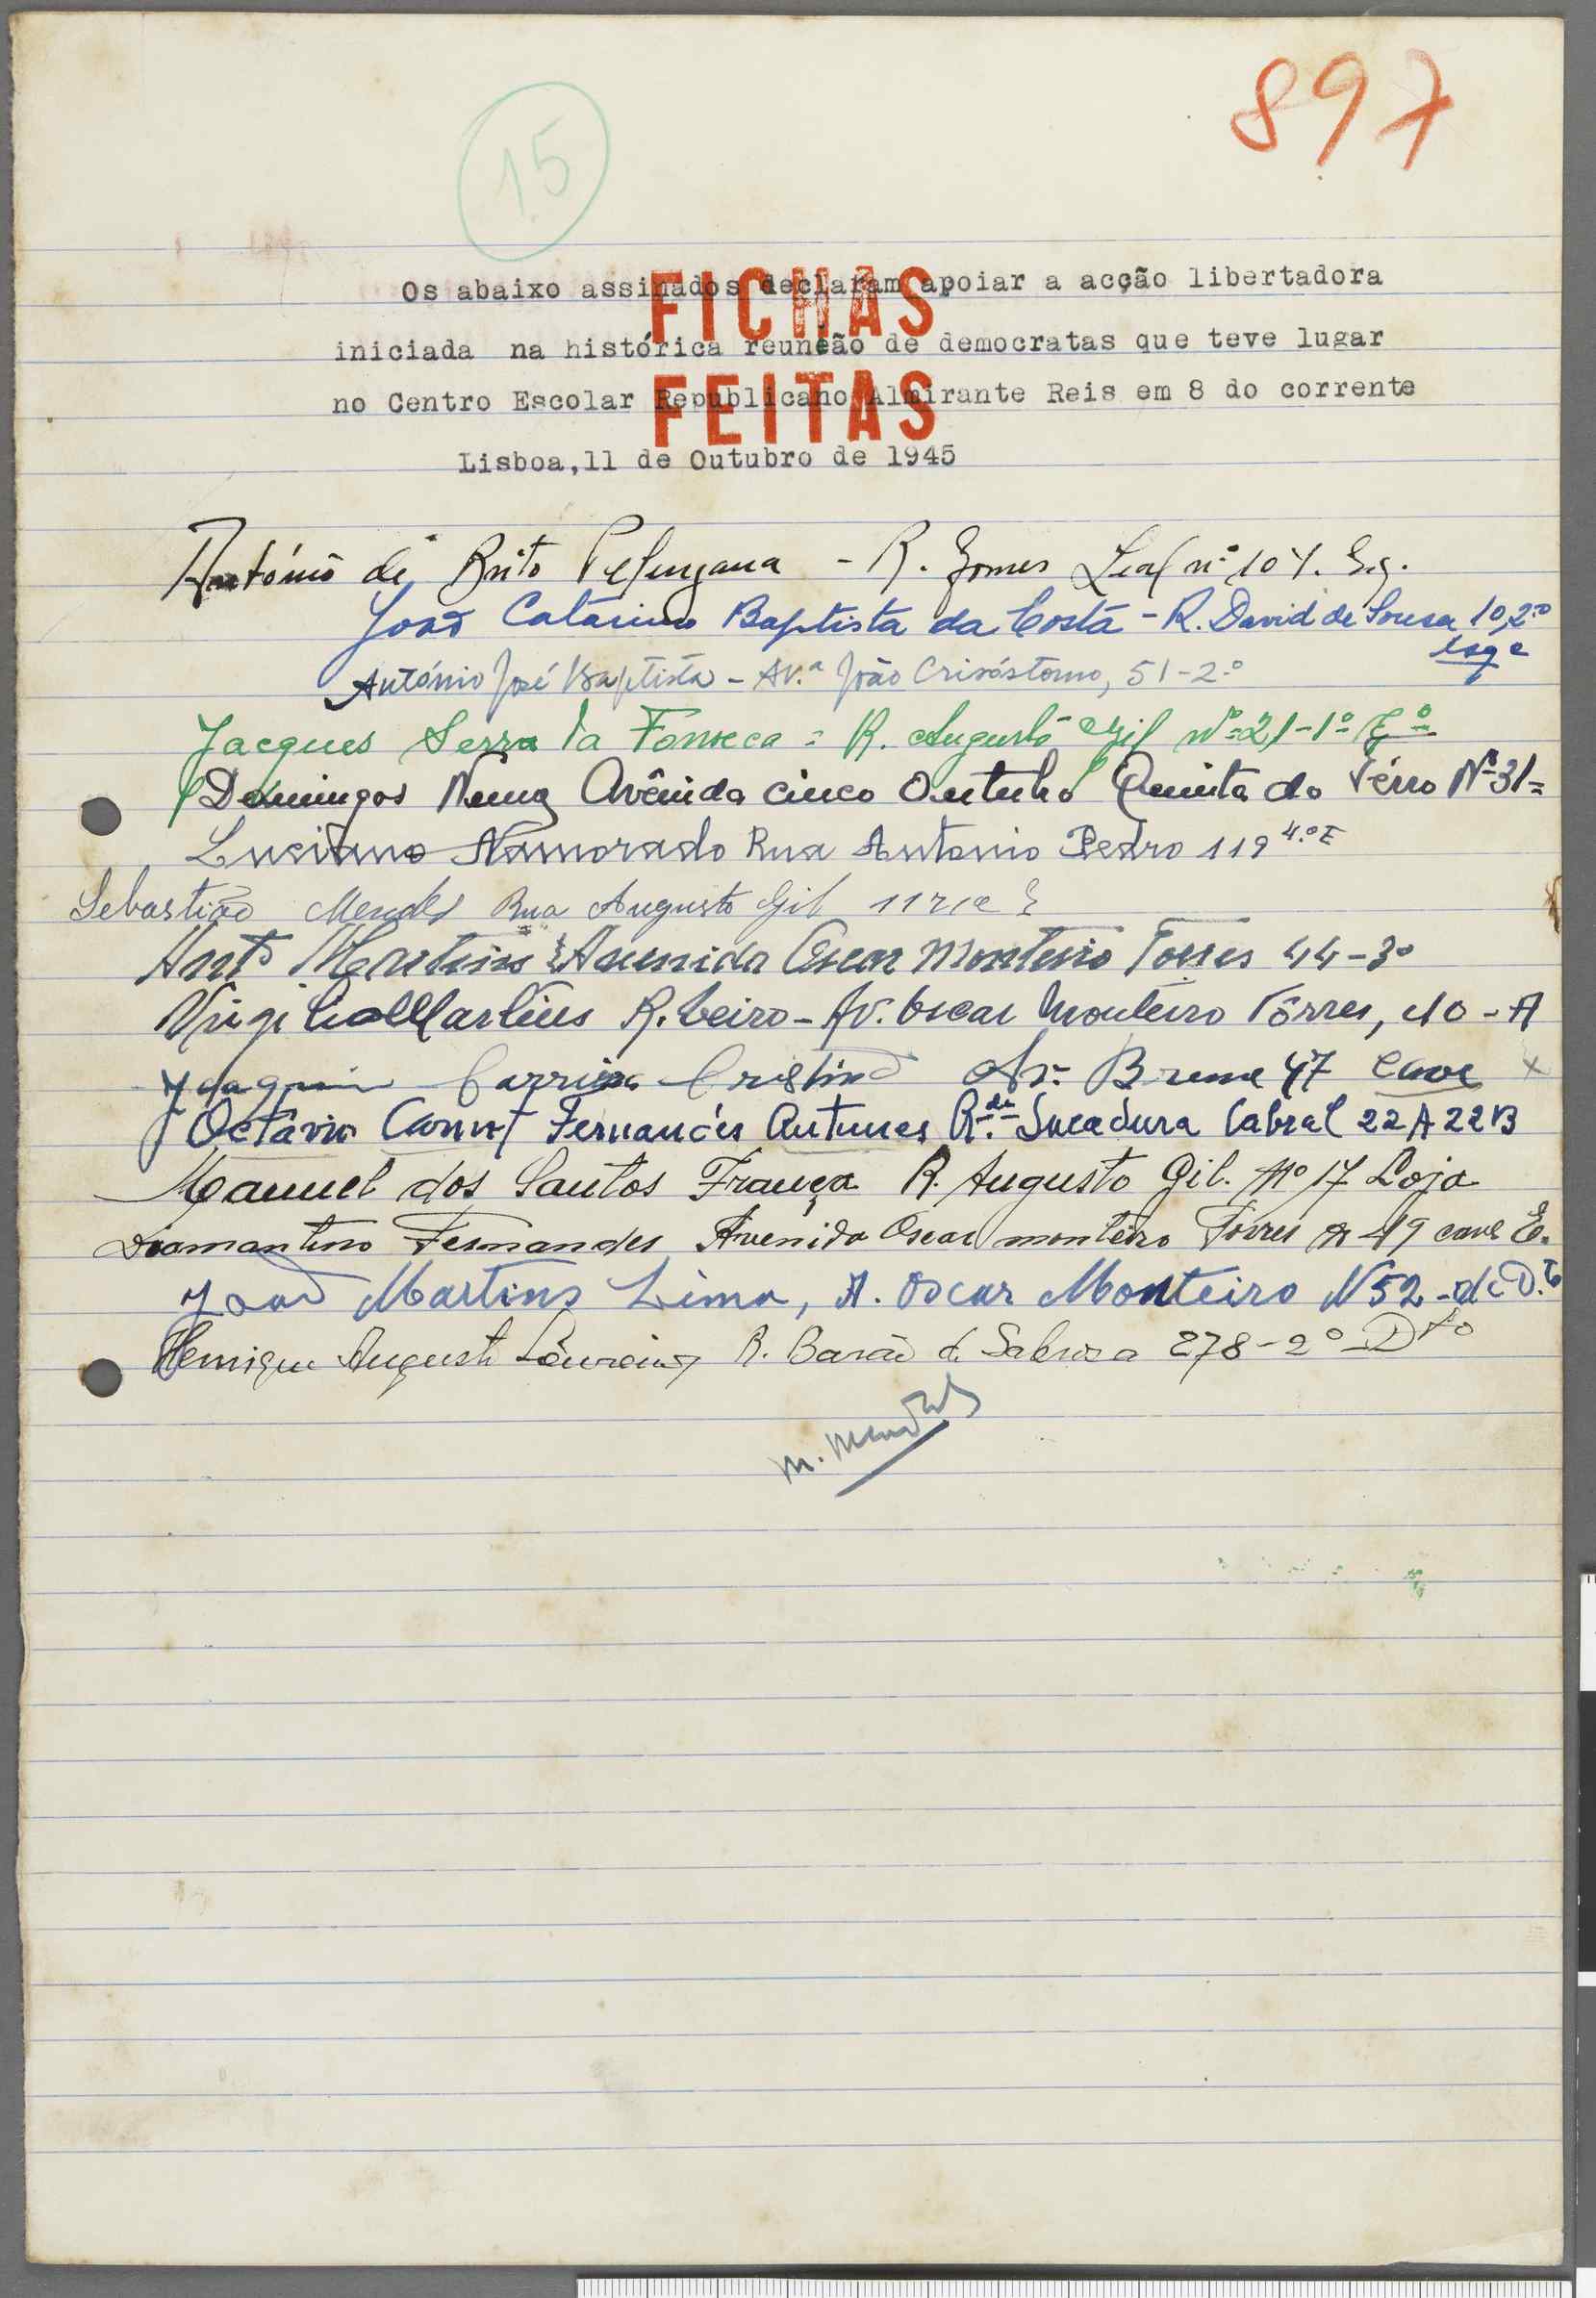 897
15
Os abaixo assinados declaram apoiar a acção libertadora
iniciada na histórica reuneão de democratas que teve lugar
no Centro Escolar Republicano Almirante Reis em 8 do corrente
FICHAS
FEITAS
Lisboa,11 de Outubro de 1945
António de Brito - R. Gomes Leal nº 10
João Catarino Baptista da Costa - R. David de Sousa 10, 2º
esqº
António José Baptista - Av.ª João Crisóstomo, 51-2º
Jacques Serra da Fonseca = R. Augusto Gil nº 21-1º
Domingos Avênida cinco Outubro Quinta do Férro Nº 31=
Luciano Namorado Rua Antonio Pedro 119 4.º E
Sebastião Mendes Rua Augusto Gil 11
Antº Martins Avenida Oscar Monteiro Torres 44-3º
Virgilio Martins Ribeiro - Av. Oscar Monteiro Tôrres, 10-A
Joaquim Cristino Av. Berne 47 cave x
Octávio Carnot Fernandes Antunes R. de Sacadura Cabral 22A 22B
Manuel dos Santos França R. Augusto Gil. Nº 17 Loja
Diamantino Fernandes Avenida Oscar monteiro Torres 49 cave E.
João Martins Lima, A. Oscar Monteiro N 52
Henrique Augusto Loureiro R. Barão de Sabrosa 278-2º Dto
M. Mendes